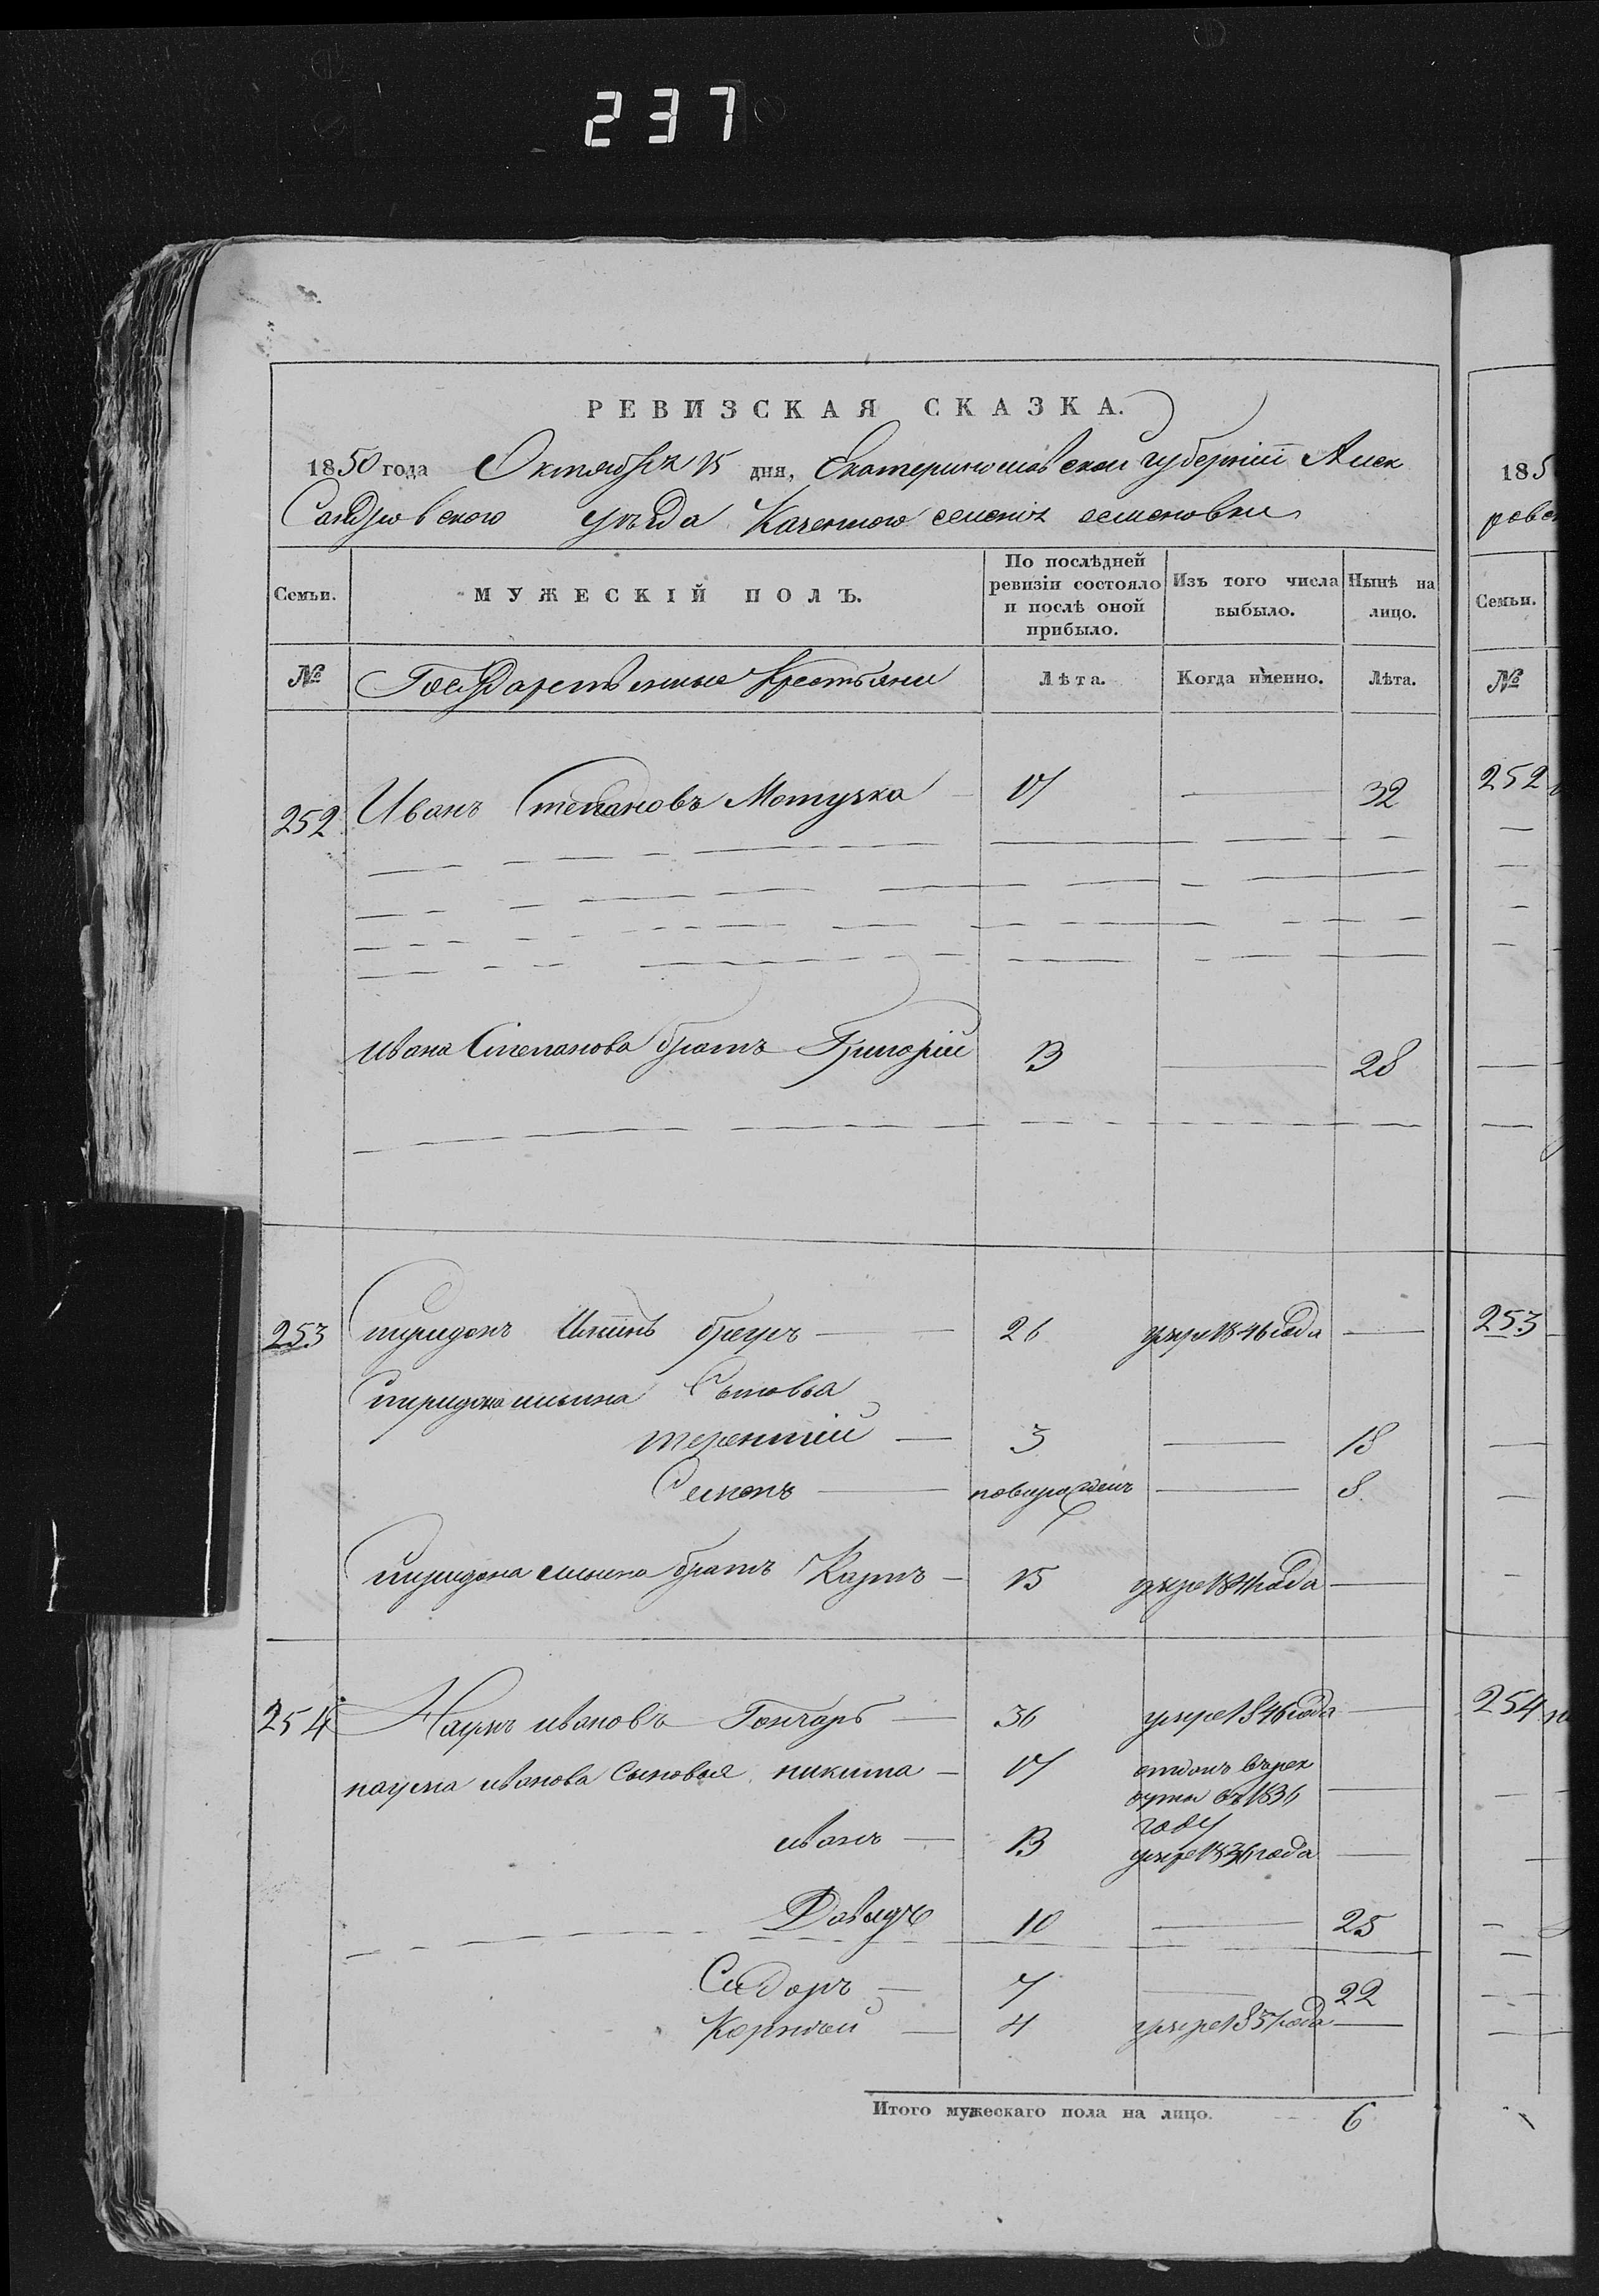 237
РЕВИЗСКАЯ СКАЗКА.
1850 года Октября 15 дня, Екатеринославской губерніи Алек
сандровского уѣзда Казенного селенія семеновки
Семьи. МУЖЕСКІЙ ПОЛЪ. По послѣдней ревизіи состояло и послѣ оной прибыло. Изъ того числа выбыло. Нынѣ на лицо.
№ Государственные Крестьяни Лѣта. Когда именно. Лѣта.
252 Иванъ Степановъ Мотузка 17 — 32
Ивана Степанова братъ Григорій 13 — 28
253 Спиридонъ Ильинъ 26 умре 1846 года —
Спиридона ильина Сыновья
терентій — 3 — 18
Семенъ — новорожденъ — 8
Спиридона ильина братъ Карпъ — 15 умре 184 года —
254 Наумъ ивановъ Гончаръ — 36 умре 1846 года —
наума иванова сыновья никита — 17 отданъ в рек
руты въ 1836 —
году
иванъ — 13 умре 1836 года —
Давыдъ 10 — 25
Сидоръ — 7 — 22
Корній — 4 умре 1837 года —
Итого мужескаго пола на лицо. 6
185
ров
Семьи.
№
252
253
254